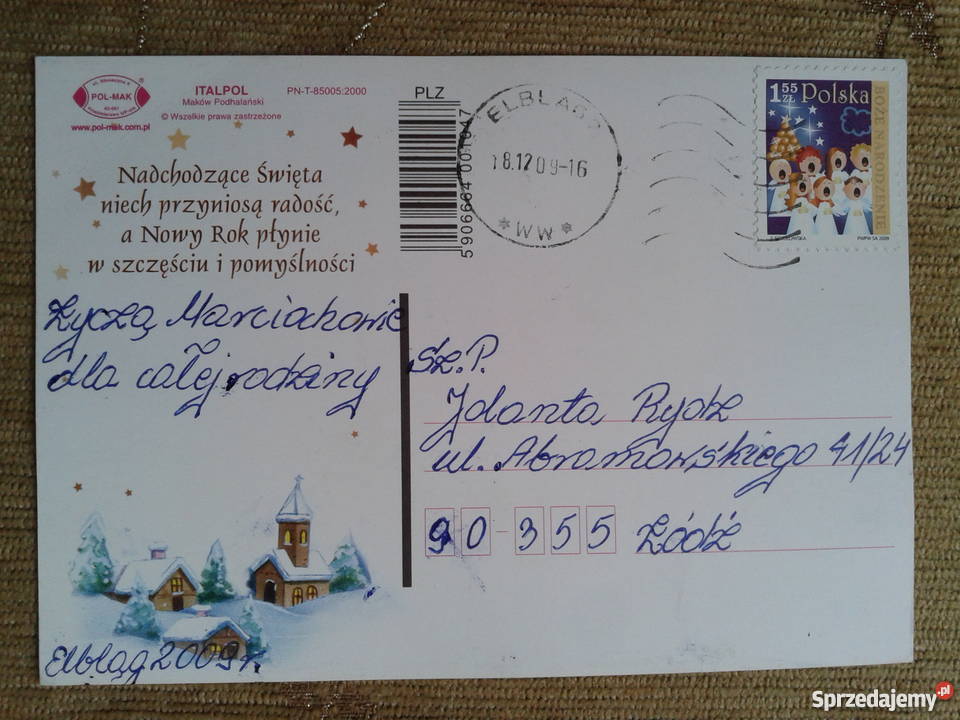 POL-MAK
www.pol-mak.com.pl
ITALPOL
Maków Podhalański
© Wszelkie prawa zastrzeżone
PN-T-85005:2000
PLZ
5906664 001047
ELBLĄG
18.12 09-16
*WW*
1 55 ZŁ Polska
BOŻE NARODZENIE
PWPW SA 2009
Nadchodzące Święta
niech przyniosą radość,
a Nowy Rok płynie
w szczęściu i pomyślności
Życzą Marciachowie
dla całej rodziny
Elbląg 2009 r.
Sz.P.
Jolanta Rydz
ul. Abramowskiego 41/24
90-355 Łódź
Sprzedajemy.pl